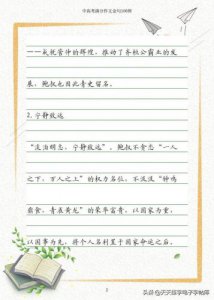 中高考满分作文金句100例
——成就管仲的辉煌，推动了齐桓公霸业的发
展，鲍叔也因此青史留名。
2.宁静致远
“淡泊明志，宁静致远”，鲍叔不贪恋“一人
之下，万人之上”的权力名位，不流淡“钟鸣
鼎食，青雀黄龙”的荣华富贵，以国家为重，
以国事为先，将个人名利置于国家命运之后。
2
头条@天天练字电子字帖库